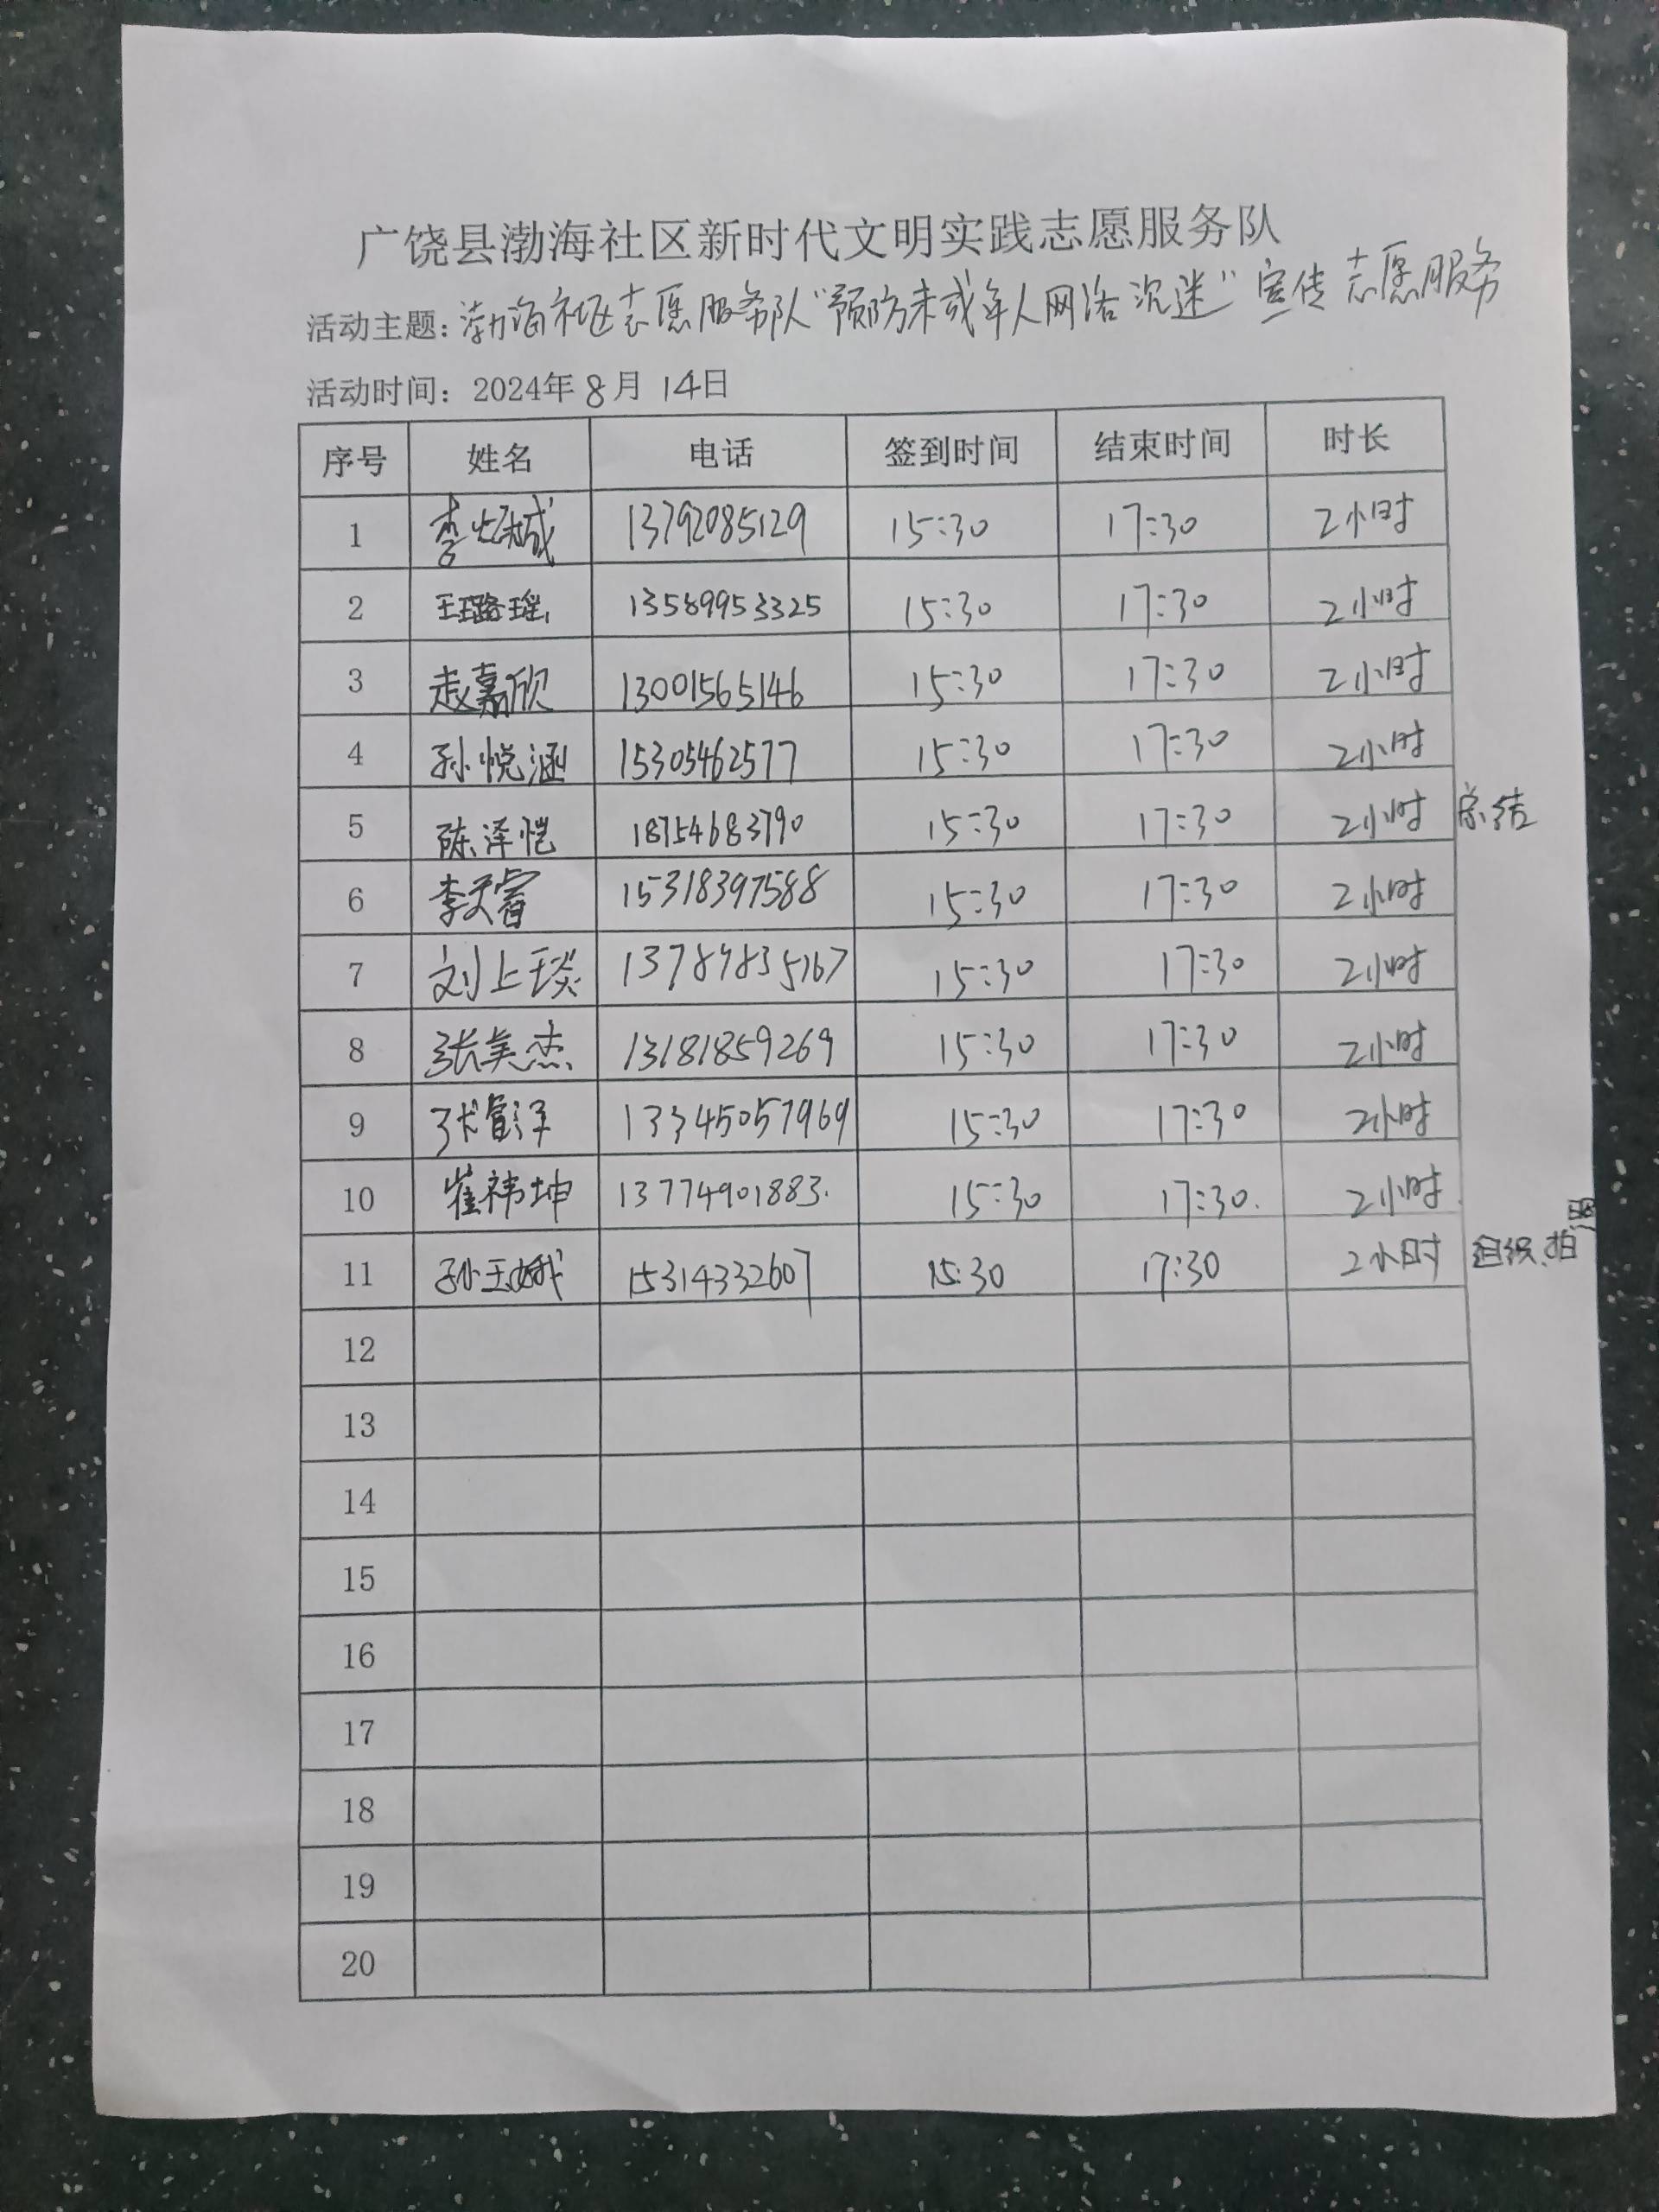 广饶县渤海社区新时代文明实践志愿服务队
活动主题：渤海社区志愿服务队“预防未成年人网络沉迷”宣传志愿服务
活动时间：2024年8月14日
序号 姓名 电话 签到时间 结束时间 时长
1 李 13792085129 15:30 17:30 2小时
2 王璐瑶 13589953325 15:30 17:30 2小时
3 赵嘉欣 13001565146 15:30 17:30 2小时
4 孙悦涵 15305462577 15:30 17:30 2小时
5 陈泽恺 18754683790 15:30 17:30 2小时 总结
6 李天睿 15318397588 15:30 17:30 2小时
7 刘上琰 15:30 17:30 2小时
8 张美杰 13181859269 15:30 17:30 2小时
9 张 13345057969 15:30 17:30 2小时
10 崔祎坤 13774901883. 15:30 17:30. 2小时.
11 孙玉娥 15314332607 15:30 17:30 2小时 组织.拍照
12
13
14
15
16
17
18
19
20